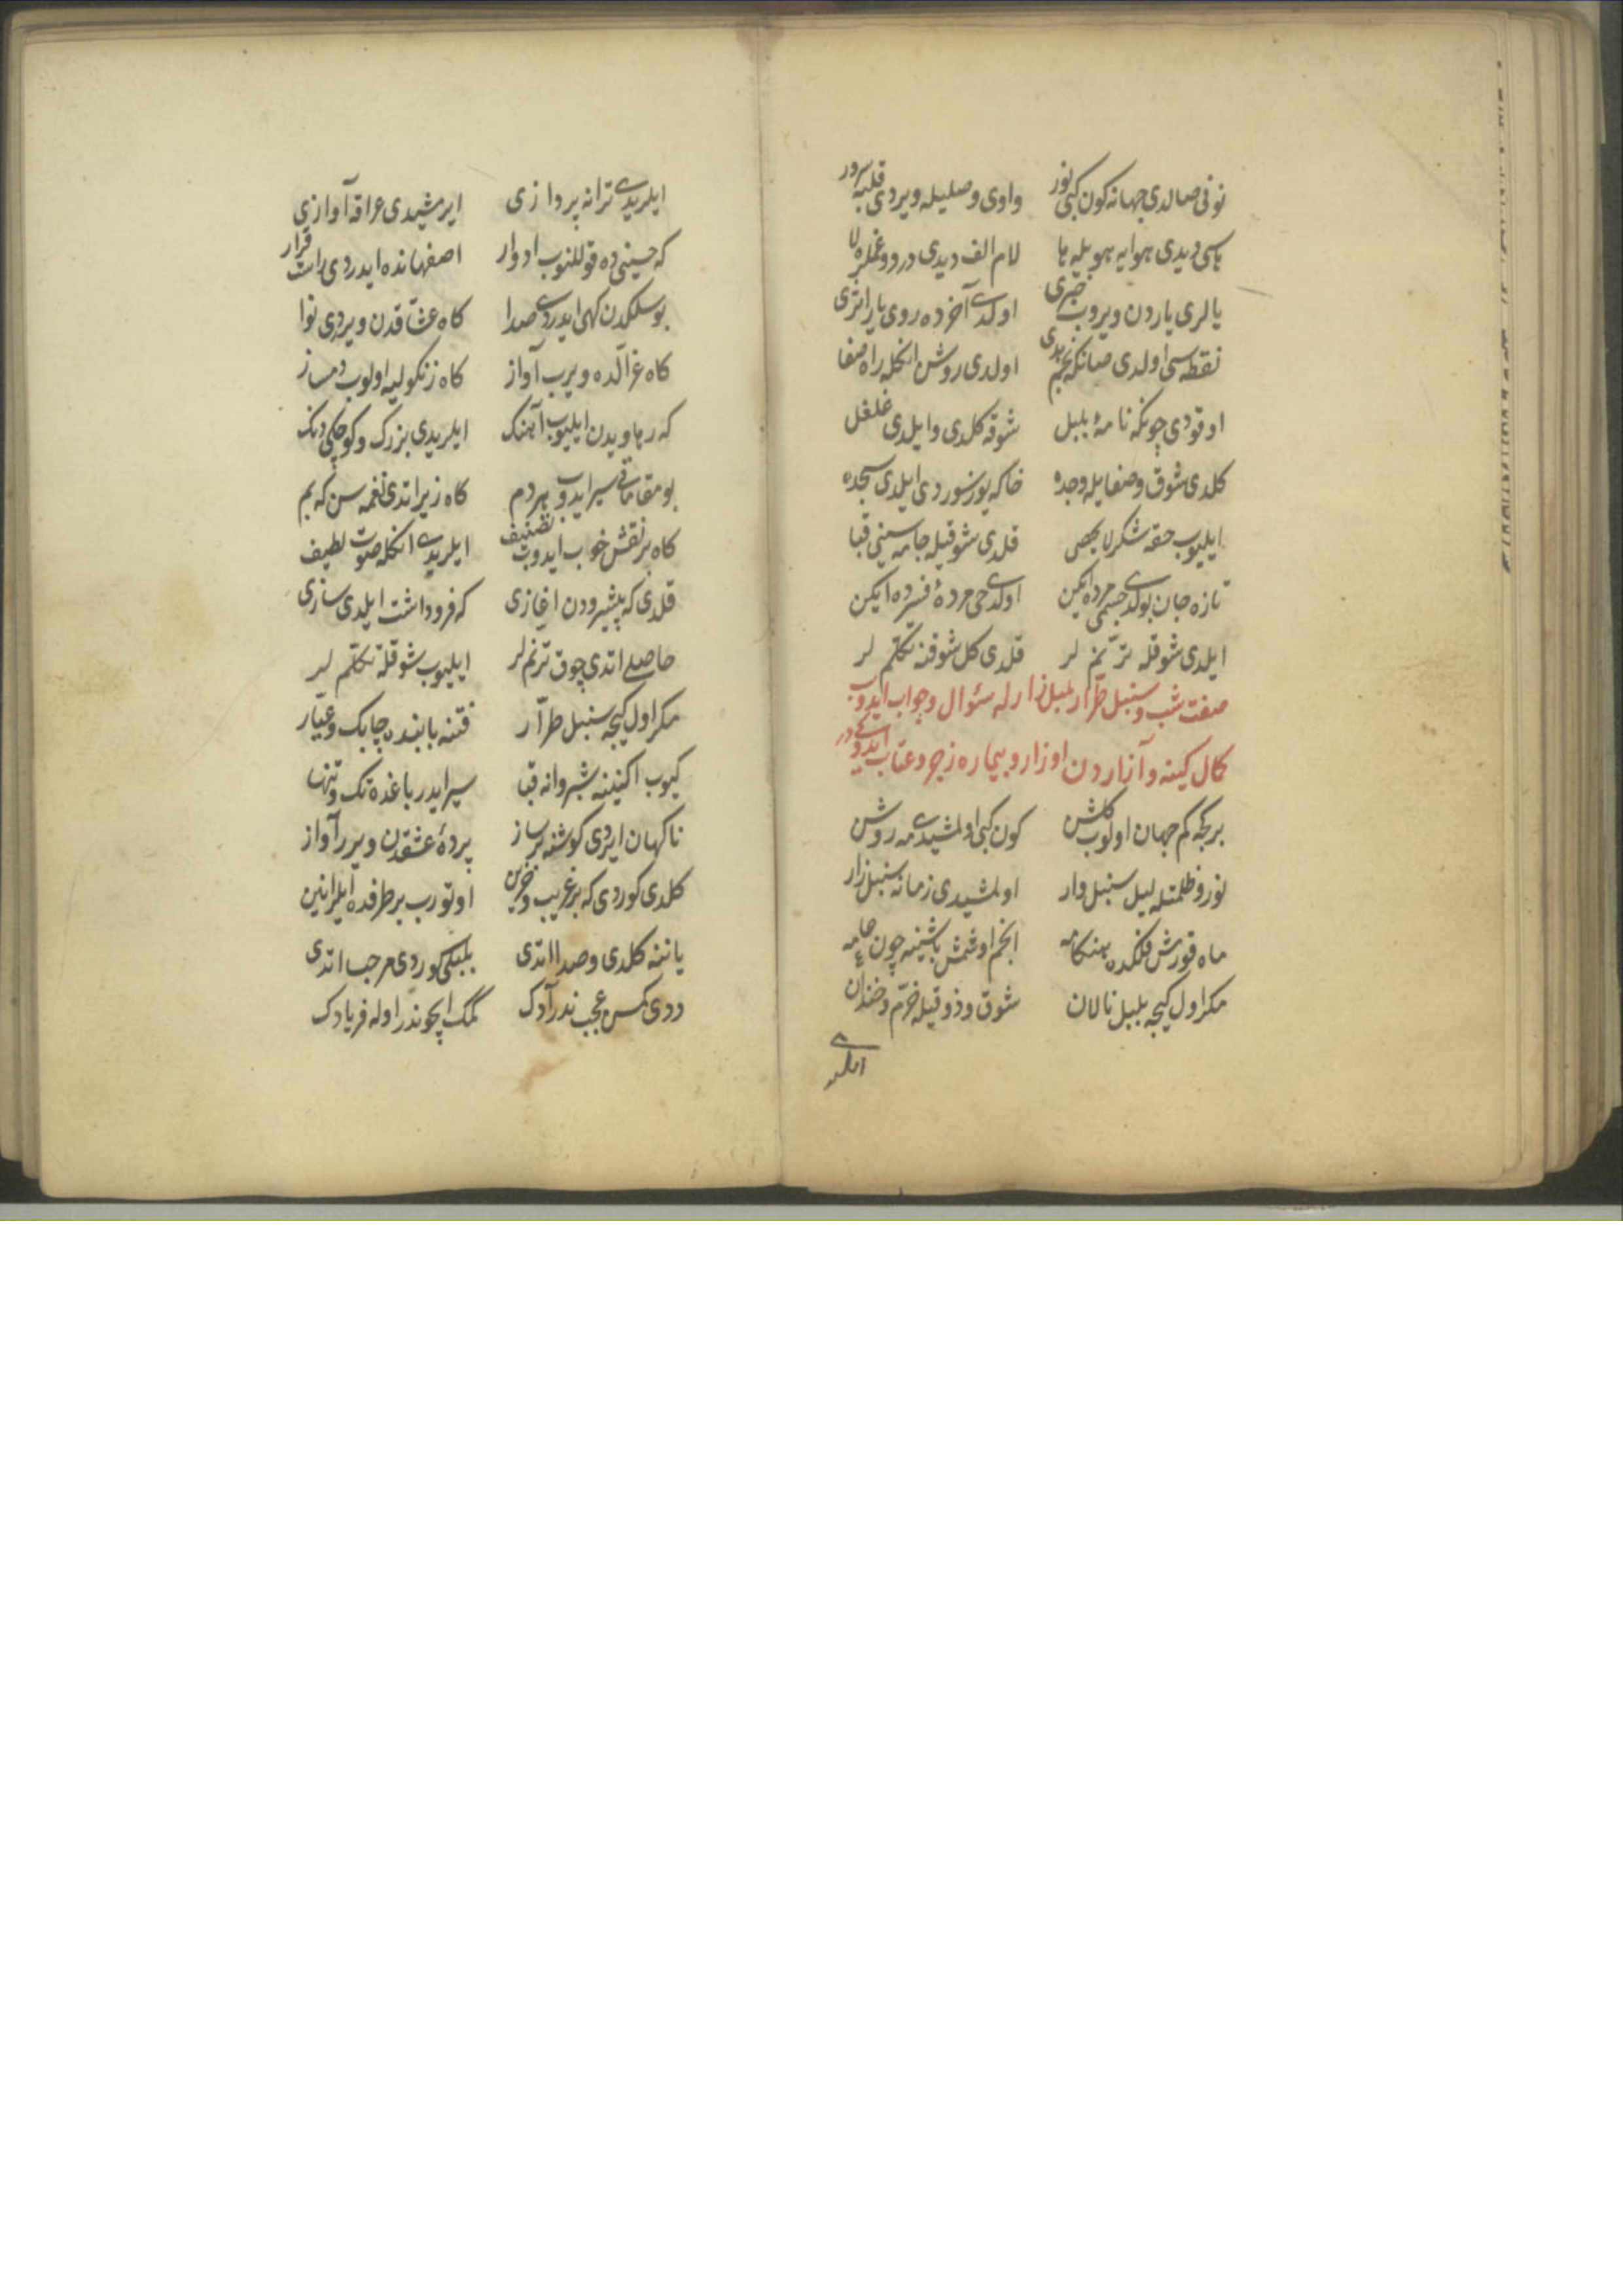 نونی صالدی جهانه کون کبی نور واوی وصلیله ویردی قلبه سرور
یاسی دیدی هوایه هو یله یا لام الف دیدی درد و غملره لا
یالری یاردن ویروب خبری اولدی آخرده روی یار اثری
نقطه سی اولدی صانکه نجم هدی اولدی روشن انکله راه صفا
اوقودی چونکه نامهٔ بلبل شوقه کلدی و ایلدی غلغل
کلدی شوق و صفایله وجده خاکه یوز سوردی ایلدی سجده
ایلیوب حقه شکر لا یحصی قلدی شوقیله جامه سینی قبا
تازه جان بولدی جسمی مرده ایکن اولدی حی مردهٔ فسرده ایکن
ایلدی شوقله ترنم لر قلدی کل شوقنه تکلم لر
صفت شب و سنبل طرار بلبل زارله سئوال و جواب ایدوب
کمال کینه و آزاردن اوزار و بیماره زجر و عتاب ایتدوکیدر
بر کجه کم جهان اولوب کلشن کون کبی اولمشیدی مه روشن
نور و ظلمتله لیل سنبل وار اولمشیدی زمانه سنبل زار
ماه قورش فلکده هنکامه انجم اوشمش باشینه چون عامه
مکر اول کیجه بلبل نالان شوق و ذوقیله خرم و خندان
ایلریدی
ایلریدی ترانه پردازی ایرمشیدی عراقه آوازی
که حسینی ده قوللنوب ادوار اصفهانده ایدردی راست قرار
بوسلکدن کهی ایدردی صدا کاه عشاقدن ویردی نوا
کاه غزالده ویرب آواز کاه زنکولیه اولوب دمساز
که رهاویدن ایلیوب آهنک ایلریدی بزرک و کوچکی دنک
بو مقاماتی سیر ایدوب هردم کاه زیر اتدی نغمه سن که بم
کاه بر نقش خوب ایدوب تصنیف ایلریدی انکله صوت لطیف
قلدی که پیشرودن اغازی که فرو داشت ایلدی سازی
حاصلی اتدی چوق ترنم لر ایلیوب شوقله تکلم لر
مکر اول کیجه سنبل طرار فتنه بابنده چابک و عیار
کیوب اکنینه شبروانه قبا سیر ایدر باغده تک و تنها
ناکهان ایردی کوشنه بر ساز پردهٔ عشقدن ویرر آواز
کلدی کوردی که بر غریب و حزین اوتورب بر طرفده ایلر انین
یاننه کلدی و صدا اتدی بلبلی کوردی مرحبا اتدی
ددی کمسن عجب ندر آدک نمک ایچوندر اوله فریادک